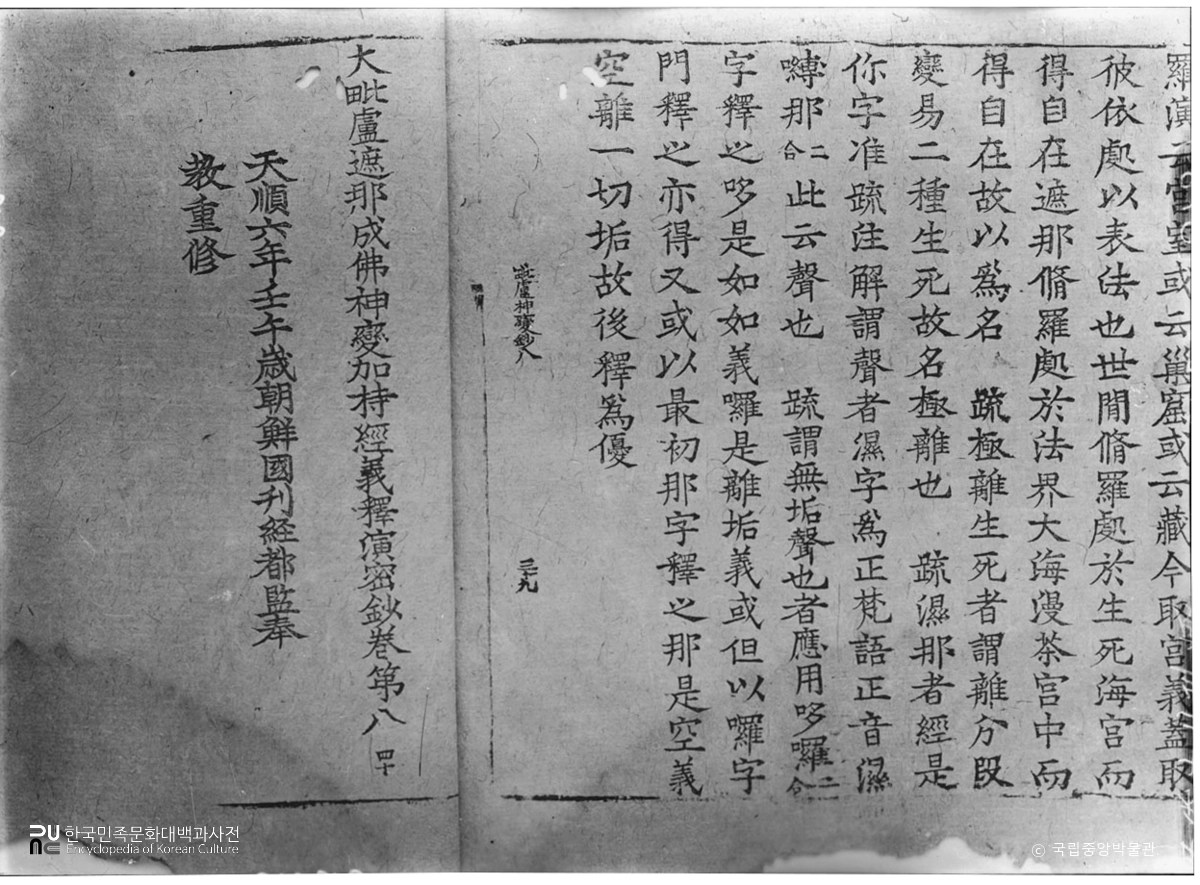 羅演云宮室或云巢窟或云藏今取宮義蓋取
彼依處以表法也世間脩羅處於生死海宮而
得自在遮那脩羅處於法界大海漫茶宮中而
得自在故以爲名 疏極離生死者謂離分段
變易二種生死故名極離也 疏濕那者經是
你字准疏注解謂聲者濕字爲正梵語正音濕
嚩那二合此云聲也 疏謂無垢聲也者應用哆囉二合
字釋之哆是如如義囉是離垢義或但以囉字
門釋之亦得又或以最初那字釋之那是空義
空離一切垢故後釋爲優
毗盧神變鈔八 三九
大毗盧遮那成佛神變加持經義釋演密鈔卷第八 四十
天順六年壬午歲朝鮮國刊經都監奉
教重修
한국민족문화대백과사전
Encyclopedia of Korean Culture
© 국립중앙박물관